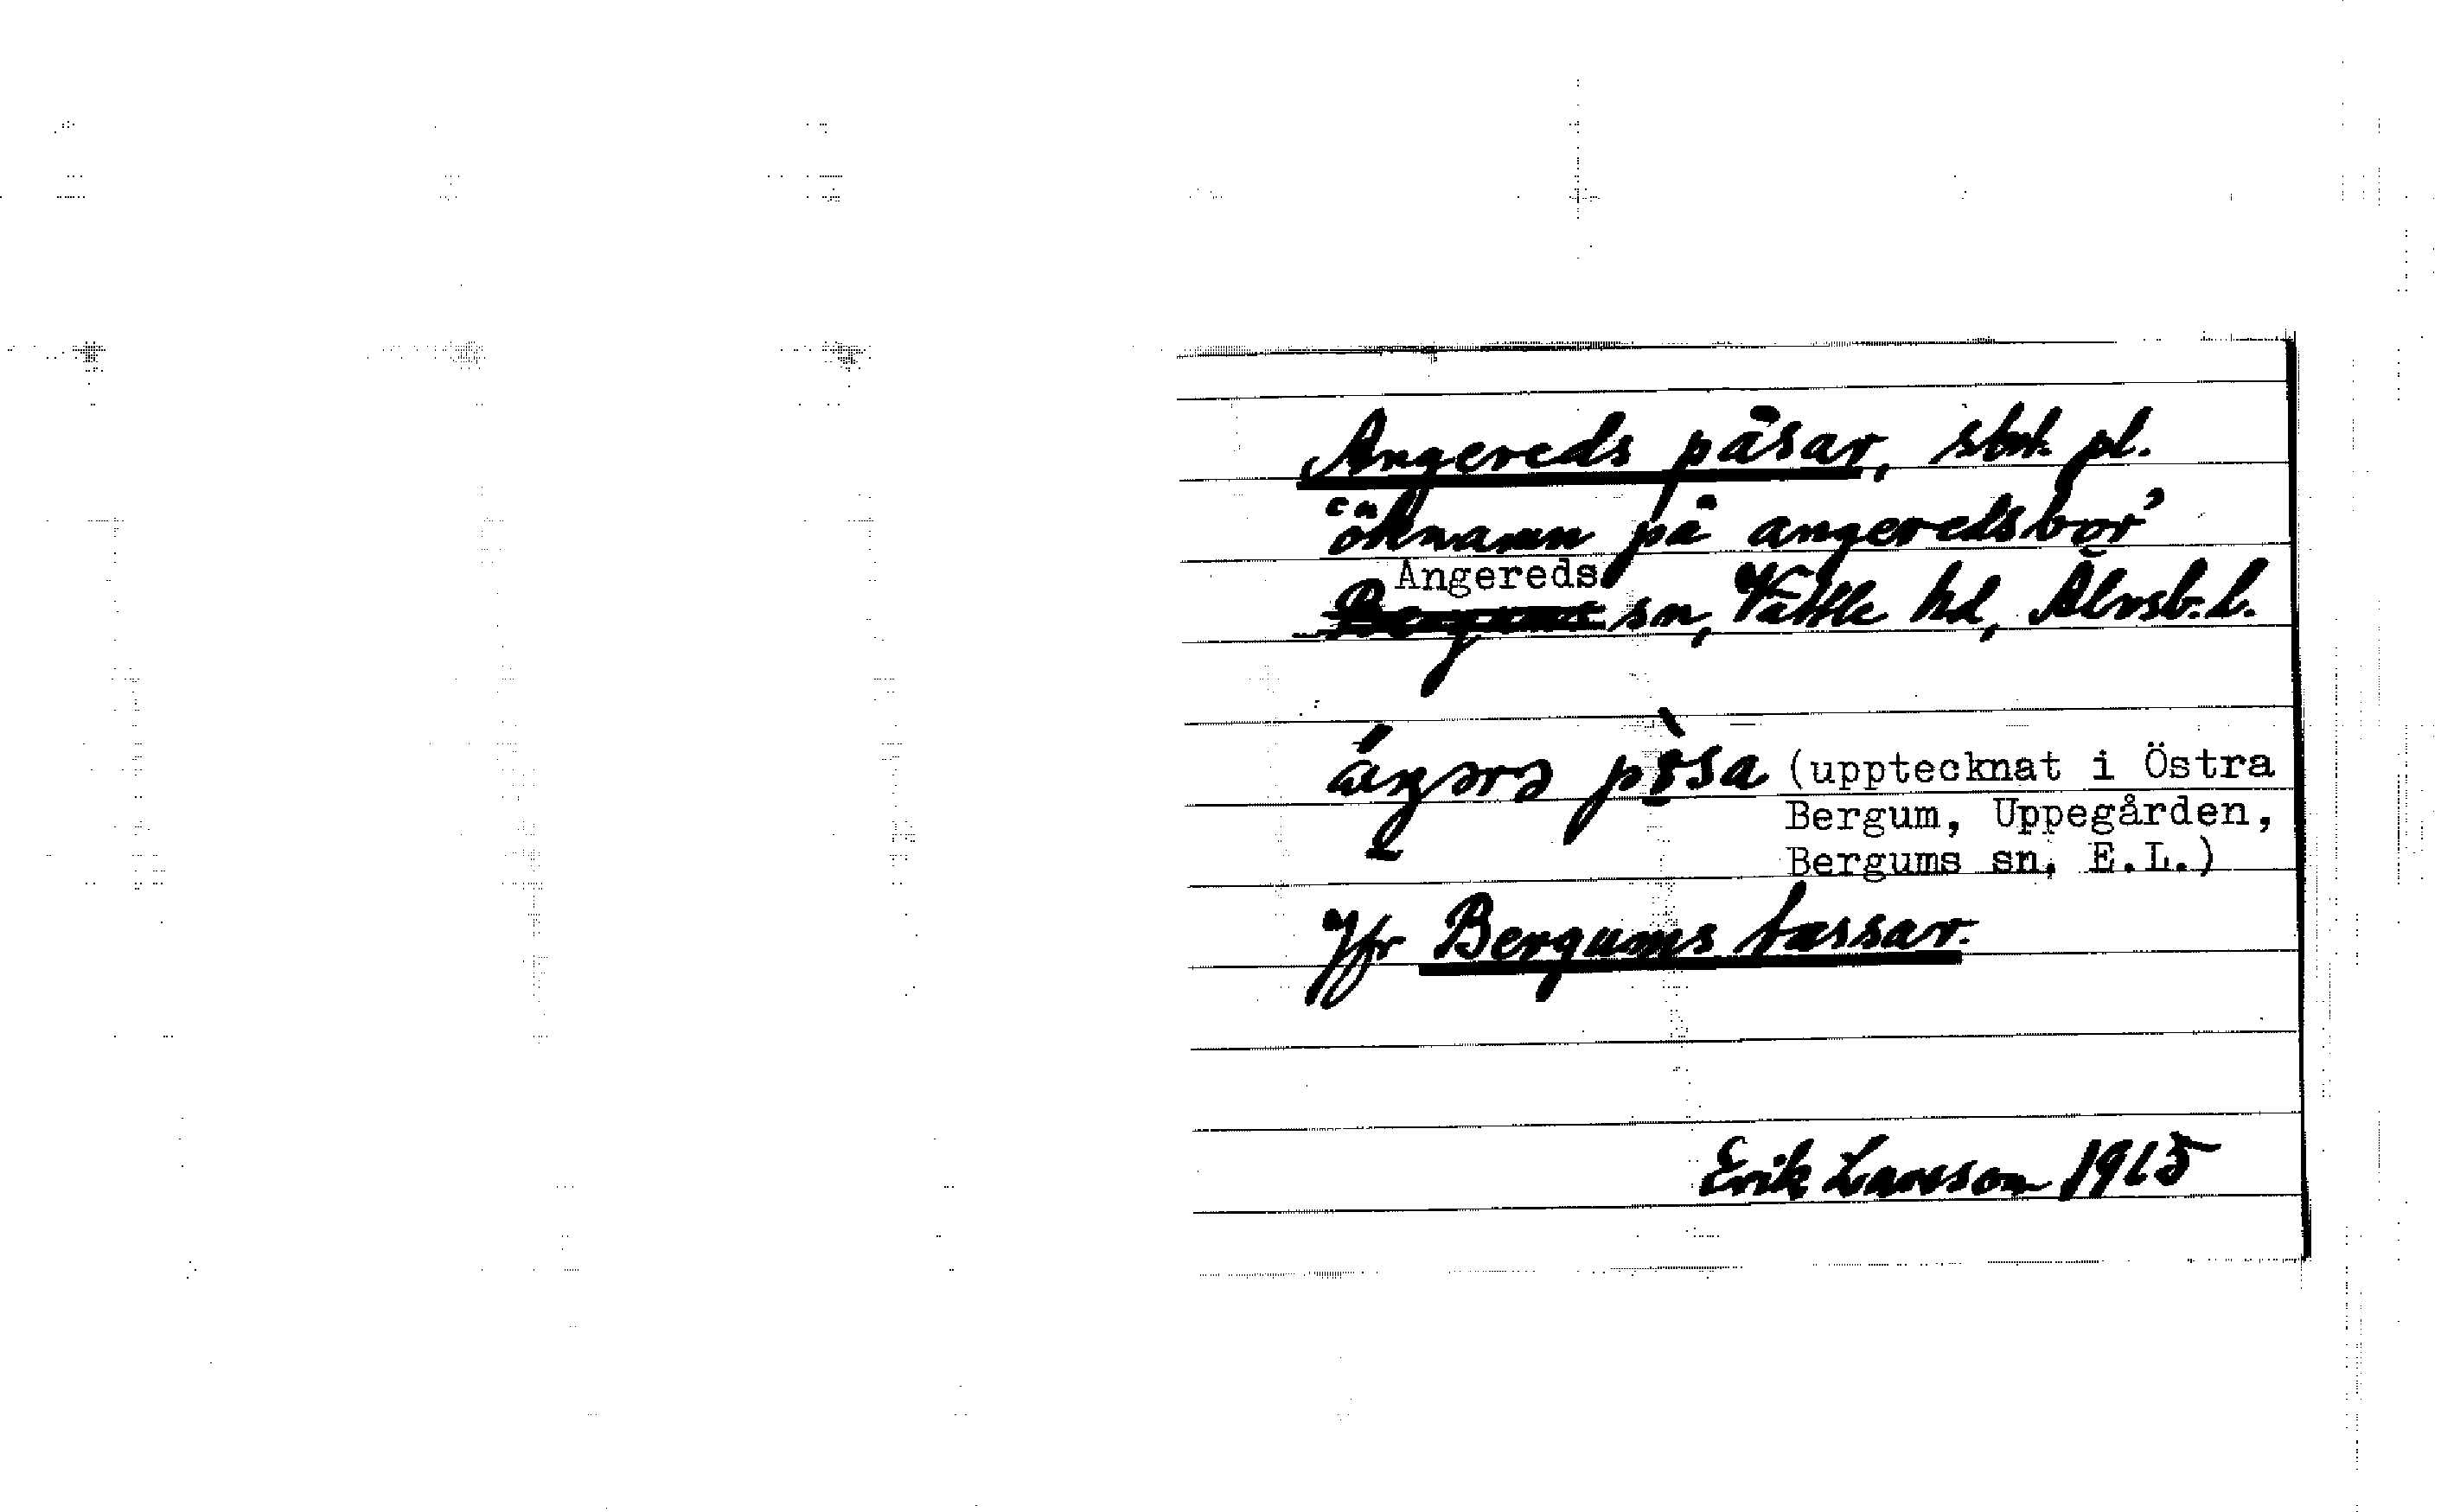 Angereds påsar, sbst. pl.
‘öknamn på angeredsbor’
Angereds
Bergums sn, Vättle hd, Älvsb. l.
(upptecknat i Östra
Bergum, Uppegården,
Bergums sn, E.L.)
Jfr Bergums tassar.
Erik Larsson 1915